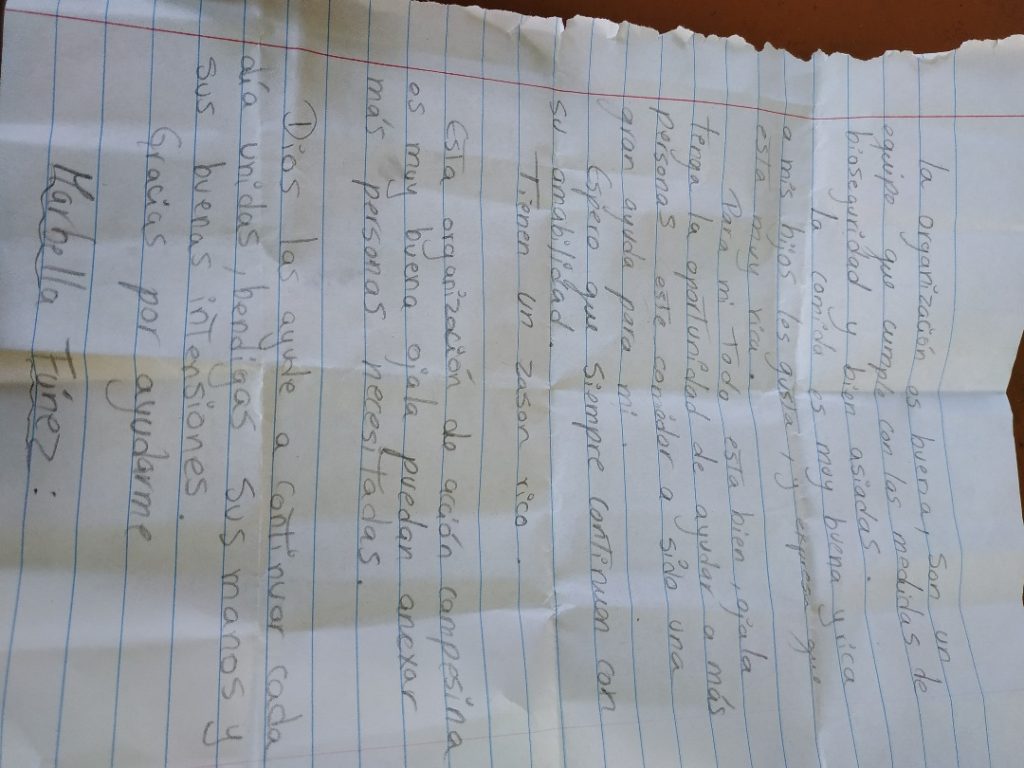 La organización es buena, son un
equipo que cumple con las medidas de
bioseguridad y bien asiadas.
La comida es muy buena y rica
a mis hijos les gusta, y expresa que
esta muy rica.
Para mi todo esta bien, ojala
tenga la oportunidad de ayudar a más
personas este comedor a sido una
gran ayuda para mi.
Espero que siempre continuen con
su amabilidad.
Tienen un zason rico.
Esta organización de acción campesina
es muy buena ojala puedan anexar
más personas necesitadas.
Dios las ayude a continuar cada
día unidas, bendigas sus manos y
sus buenas intensiones.
Gracias por ayudarme
Marbella Túnez: